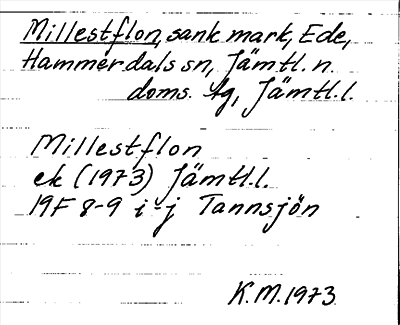 Millestflon, sank mark, Ede,
Hammerdals sn, Jämtl. n.
doms. tg, Jämtl. l.
Millestflon
ek (1973) Jämtl. l.
19F 8-9 i-j Tannsjön
K.M. 1973